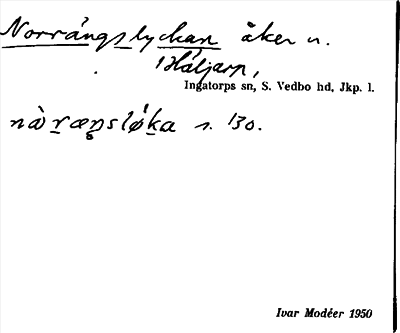 Norrångslyckan åker u.
Håljarp,
Ingatorps sn, S. Vedbo hd, Jkp. l.
nàræŋsløka s. 130.
Ivar Modéer 1950